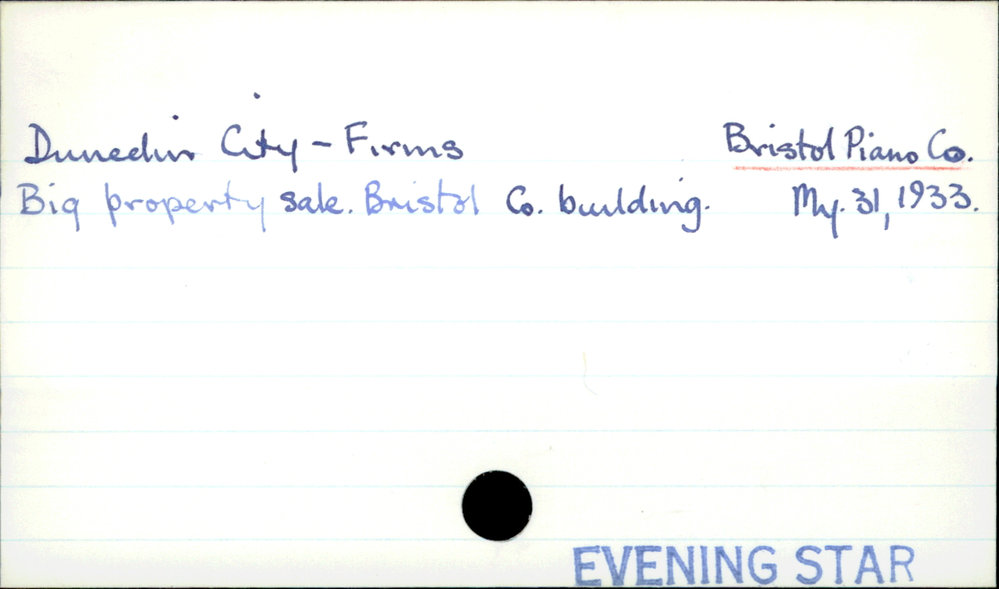 Dunedin City - Firms Bristol Piano Co.
Big property sale. Bristol Co. building. My. 31, 1933.
EVENING STAR